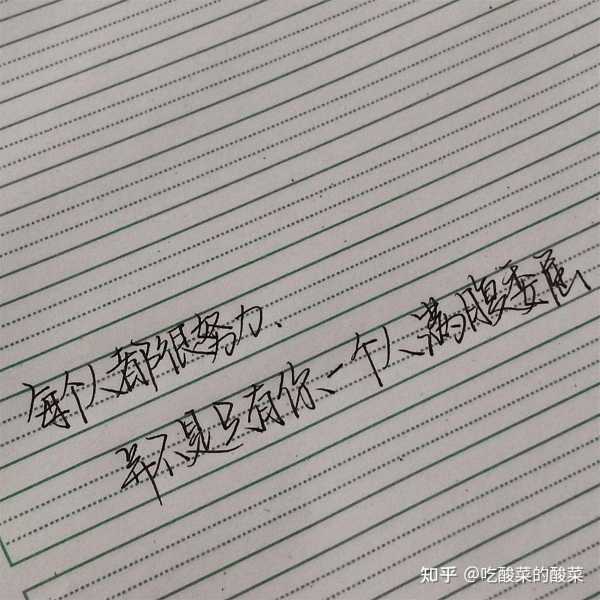 每个人都很努力、
并不是只有你一个人满腹委屈
知乎 @吃酸菜的酸菜